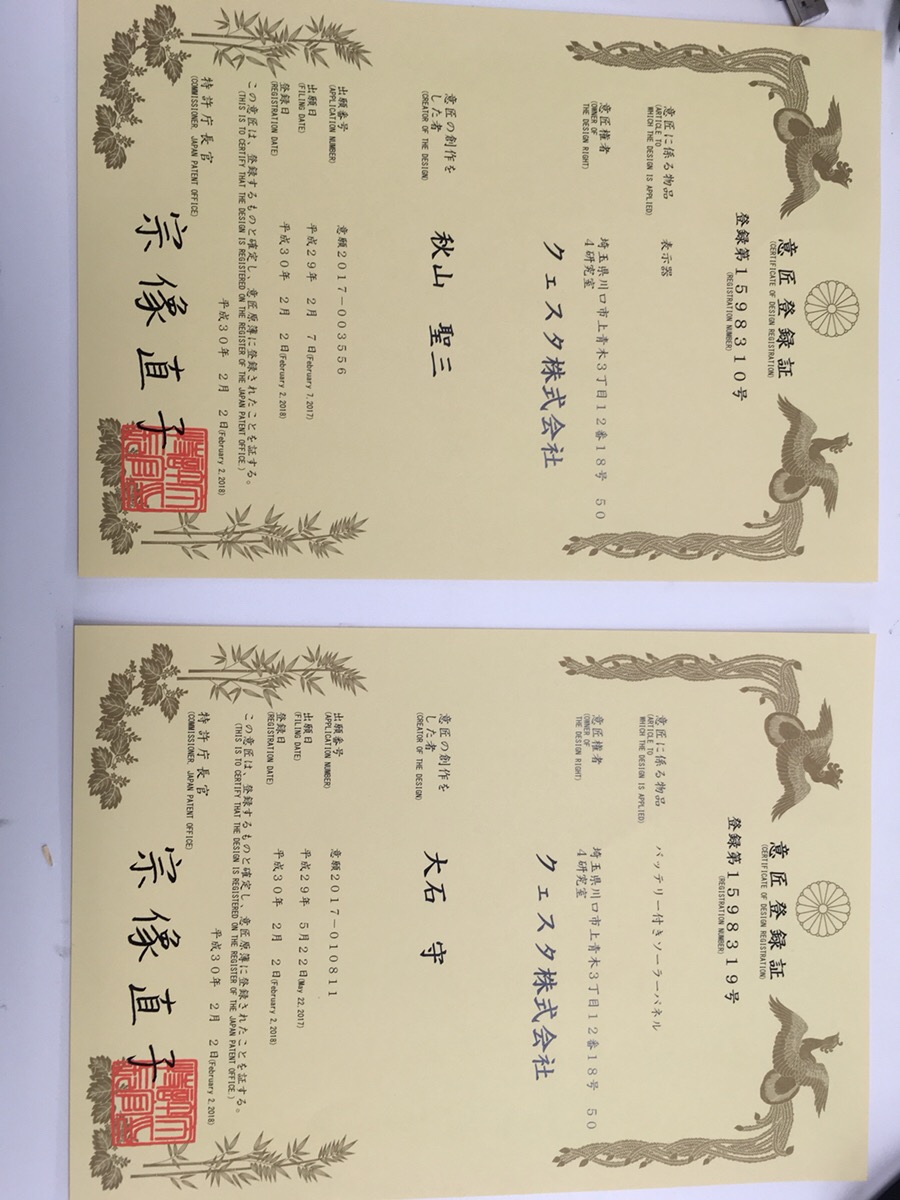 意匠登録証
(CERTIFICATE OF DESIGN REGISTRATION)
登録第1598310号
(REGISTRATION NUMBER)
意匠に係る物品
(ARTICLE TO
WHICH THE DESIGN IS APPLIED)
表示器
意匠権者
(OWNER OF
THE DESIGN RIGHT)
埼玉県川口市上青木3丁目12番18号 50
4研究室
クェスタ株式会社
意匠の創作を
した者
(CREATOR OF THE DESIGN)
秋山 聖三
出願番号
(APPLICATION NUMBER)
意願2017-003556
出願日
(FILING DATE)
平成29年 2月 7日(February 7,2017)
登録日
(REGISTRATION DATE)
平成30年 2月 2日(February 2,2018)
この意匠は、登録するものと確定し、意匠原簿に登録されたことを証する。
(THIS IS TO CERTIFY THAT THE DESIGN IS REGISTERED ON THE REGISTER OF THE JAPAN PATENT OFFICE.)
平成30年 2月 2日(February 2,2018)
特許庁長官
(COMMISSIONER, JAPAN PATENT OFFICE)
宗像直子
意匠登録証
(CERTIFICATE OF DESIGN REGISTRATION)
登録第1598319号
(REGISTRATION NUMBER)
意匠に係る物品
(ARTICLE TO
WHICH THE DESIGN IS APPLIED)
バッテリー付きソーラーパネル
意匠権者
(OWNER OF
THE DESIGN RIGHT)
埼玉県川口市上青木3丁目12番18号 50
4研究室
クェスタ株式会社
意匠の創作を
した者
(CREATOR OF THE DESIGN)
大石 守
出願番号
(APPLICATION NUMBER)
意願2017-010811
出願日
(FILING DATE)
平成29年 5月22日(May 22,2017)
登録日
(REGISTRATION DATE)
平成30年 2月 2日(February 2,2018)
この意匠は、登録するものと確定し、意匠原簿に登録されたことを証する。
(THIS IS TO CERTIFY THAT THE DESIGN IS REGISTERED ON THE REGISTER OF THE JAPAN PATENT OFFICE.)
平成30年 2月 2日(February 2,2018)
特許庁長官
(COMMISSIONER, JAPAN PATENT OFFICE)
宗像直子